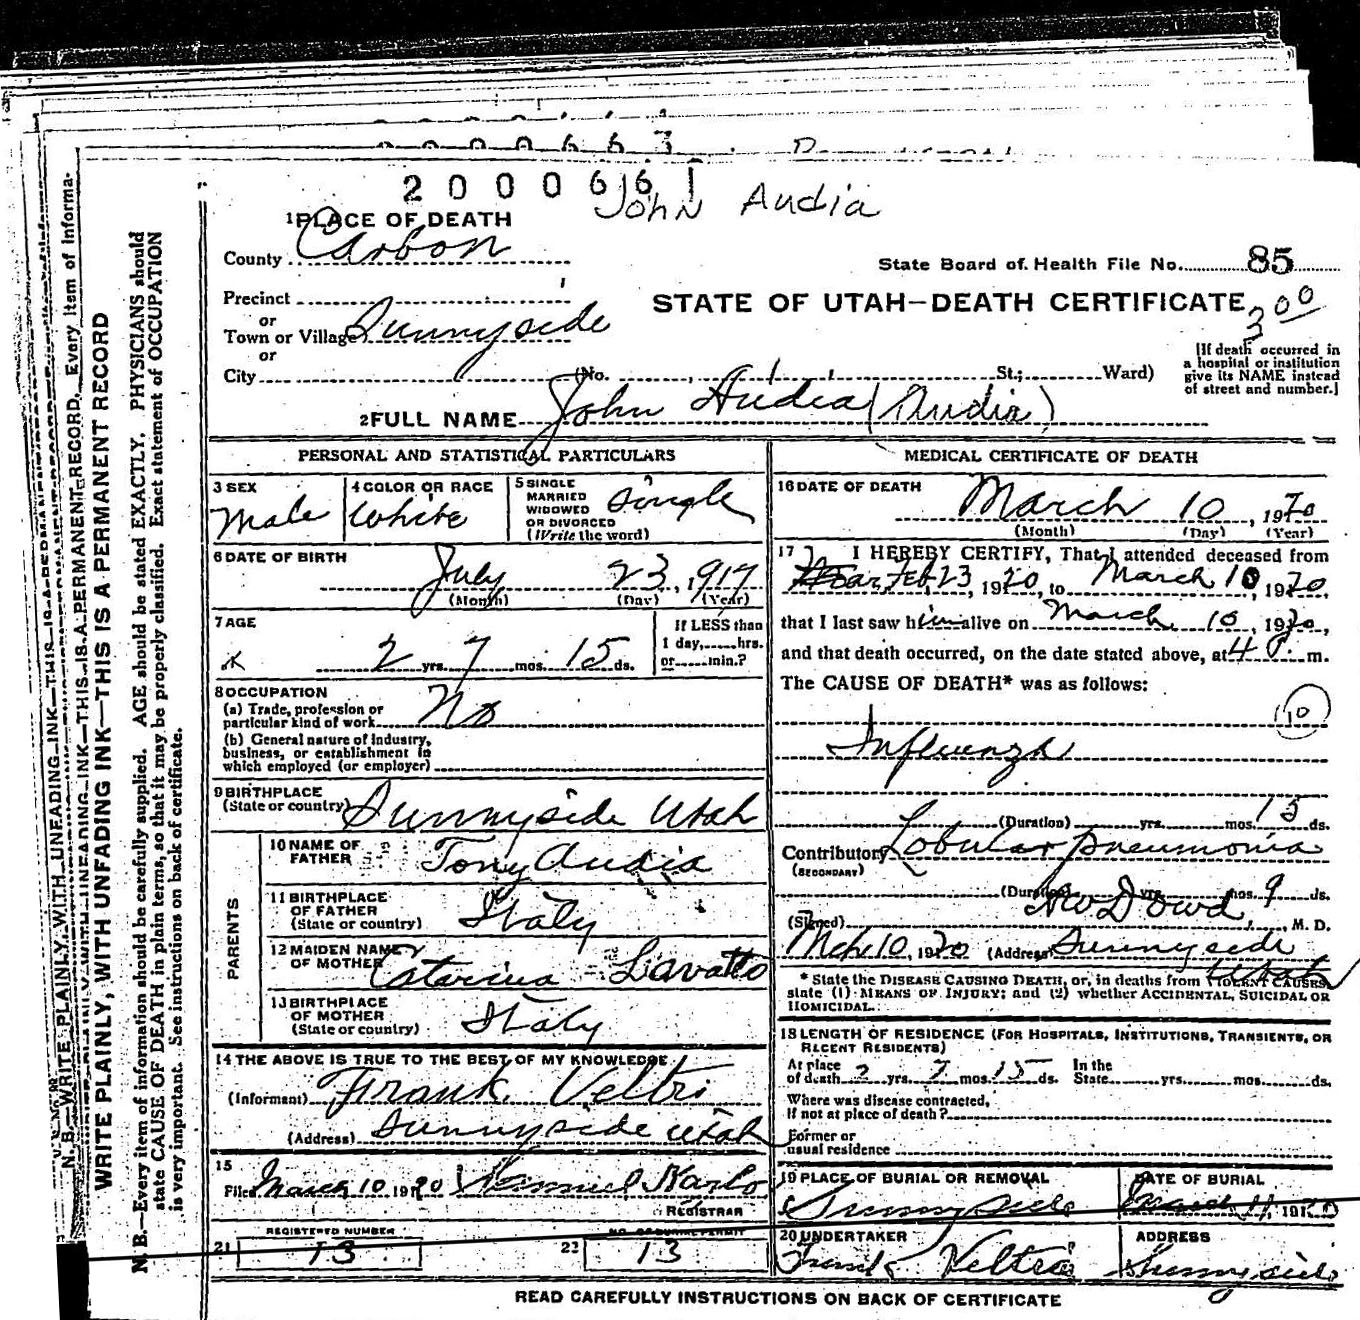 2000661
John Audia
1 PLACE OF DEATH
County Carbon
State Board of Health File No. 85
Precinct
STATE OF UTAH—DEATH CERTIFICATE
3 00
or
Town or Village Sunnyside
or
City (No. St.; Ward)
[If death occurred in
a hospital or institution
give its NAME instead
of street and number.]
2 FULL NAME John Audia (Audia)
PERSONAL AND STATISTICAL PARTICULARS
3 SEX Male
4 COLOR OR RACE White
5 SINGLE
MARRIED
WIDOWED
OR DIVORCED
(Write the word)
Single
6 DATE OF BIRTH
July 23, 1917
(Month) (Day) (Year)
7 AGE
2 yrs. 7 mos. 15 ds.
If LESS than
1 day, hrs.
or min.?
8 OCCUPATION
(a) Trade, profession or
particular kind of work No
(b) General nature of industry,
business, or establishment in
which employed (or employer)
9 BIRTHPLACE
(State or country) Sunnyside Utah
PARENTS
10 NAME OF
FATHER Tony Audia
11 BIRTHPLACE
OF FATHER
(State or country) Italy
12 MAIDEN NAME
OF MOTHER Catarina Lavatto
13 BIRTHPLACE
OF MOTHER
(State or country) Italy
14 THE ABOVE IS TRUE TO THE BEST OF MY KNOWLEDGE
(Informant) Frank Veltri
(Address) Sunnyside Utah
15
Filed March 10 1920
REGISTRAR
REGISTERED NUMBER
21 13
NO. OF BURIAL PERMIT
22 13
MEDICAL CERTIFICATE OF DEATH
16 DATE OF DEATH
March 10, 1920
(Month) (Day) (Year)
17 I HEREBY CERTIFY, That I attended deceased from
Feb 23, 1920, to March 10, 1920,
that I last saw him alive on March 10, 1920,
and that death occurred, on the date stated above, at 4 P. m.
The CAUSE OF DEATH* was as follows:
10
Influenza
(Duration) yrs. mos. 15 ds.
Contributory Lobular pneumonia
(SECONDARY)
(Duration) yrs. mos. 9 ds.
(Signed) Dowd, M. D.
Mch 10, 1920 (Address) Sunnyside
Utah
* State the DISEASE CAUSING DEATH, or, in deaths from VIOLENT CAUSES,
state (1) MEANS OF INJURY; and (2) whether ACCIDENTAL, SUICIDAL OR
HOMICIDAL.
18 LENGTH OF RESIDENCE (FOR HOSPITALS, INSTITUTIONS, TRANSIENTS, OR
RECENT RESIDENTS)
At place
of death 2 yrs. 7 mos. 15 ds. In the
State yrs. mos. ds.
Where was disease contracted,
if not at place of death?
Former or
usual residence
19 PLACE OF BURIAL OR REMOVAL
Sunnyside
DATE OF BURIAL
March 11, 1920
20 UNDERTAKER
Frank Veltri
ADDRESS
Sunnyside
READ CAREFULLY INSTRUCTIONS ON BACK OF CERTIFICATE
WRITE PLAINLY, WITH UNFADING INK—THIS IS A PERMANENT RECORD
N. B.—Every item of information should be carefully supplied. AGE should be stated EXACTLY. PHYSICIANS should
state CAUSE OF DEATH in plain terms, so that it may be properly classified. Exact statement of OCCUPATION
is very important. See instructions on back of certificate.